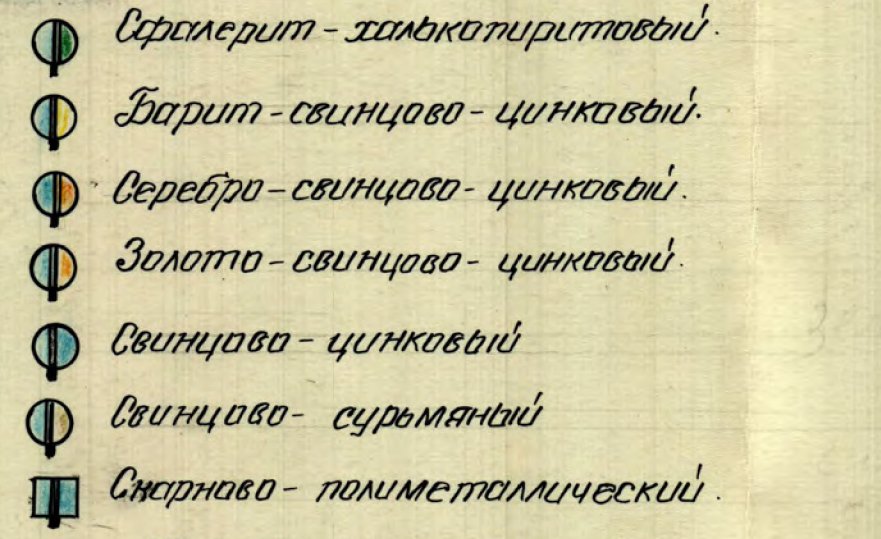 Сфалерит - халькопиритовый.
Барит - свинцово - цинковый.
Серебро - свинцово - цинковый.
Золото - свинцово - цинковый.
Свинцово - цинковый
Свинцово - сурьмяный
Скарново - полиметаллический.